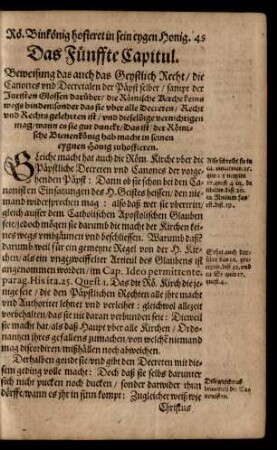 Rö. Binkönig hofieret in sein eygen Honig. 45
Das Fünffte Capitul.
Beweisung das auch das Geystlich Recht / die
Canones vnd Decretalen der Päpst selber / sampt der
Juristen Glossen darüber / die Römische Kirche keins
wegs binden: sonder das sie vber alle Decreten / Recht
vnd Rechts gelehrten ist / vnd dieselbige vernichtigen
mag / wann es sie gut dunckt / Das ist / der Römi-
sche Bienenkönig hab macht in seinen
eygnen Honig zuhoffieren.
Gleiche macht hat auch die Röm. Kirche vber die
Päpstliche Decreten vnd Canones der vorge-
henden Päpst: Dann ob sie schon bei den Ca-
nonisten Einsatzungen des H. Geystes heissen / den nie-
mand widersprechen mag: also / daß wer sie vbertritt
gleich ausser dem Catholischen Apostolischen Glauben
seie / jedoch mögen sie darumb die macht der Kirchen kei-
nes wegs verhindern vnd beschliessen. Warumb daß?
darumb weil für ein gemeyne Regel von der H. Kir-
chen / als ein vngezweiffelter Articul des Glaubens ist
angenommen worden / im Cap. Ideo permittente.
parag. His ita. 25. Quest 1. Das die Rö. Kirch die je-
nige seie / die den Päpstlichen Rechten alle jhr macht
vnd Authoritet lehnet vnd verleihet: gleichwol allezeit
vorbehalten / das sie nit daran verbunden seie: Die weil
sie macht hat / als daß Haupt vber alle Kirchen / Ord-
nungen jhres gefallens zumachen / von welchē niemand
mag discordiren / mißhällen noch abweichen.
Derhalben gonnt sie / vnd gibt den Decreten mit die-
sem geding volle macht: Doch daß sie selbs darunter
nicht pucken noch ducken / sonder darwider thun
dörffe / wann es jhr in sinn kompt: Zugleicher weiß wie
Christus